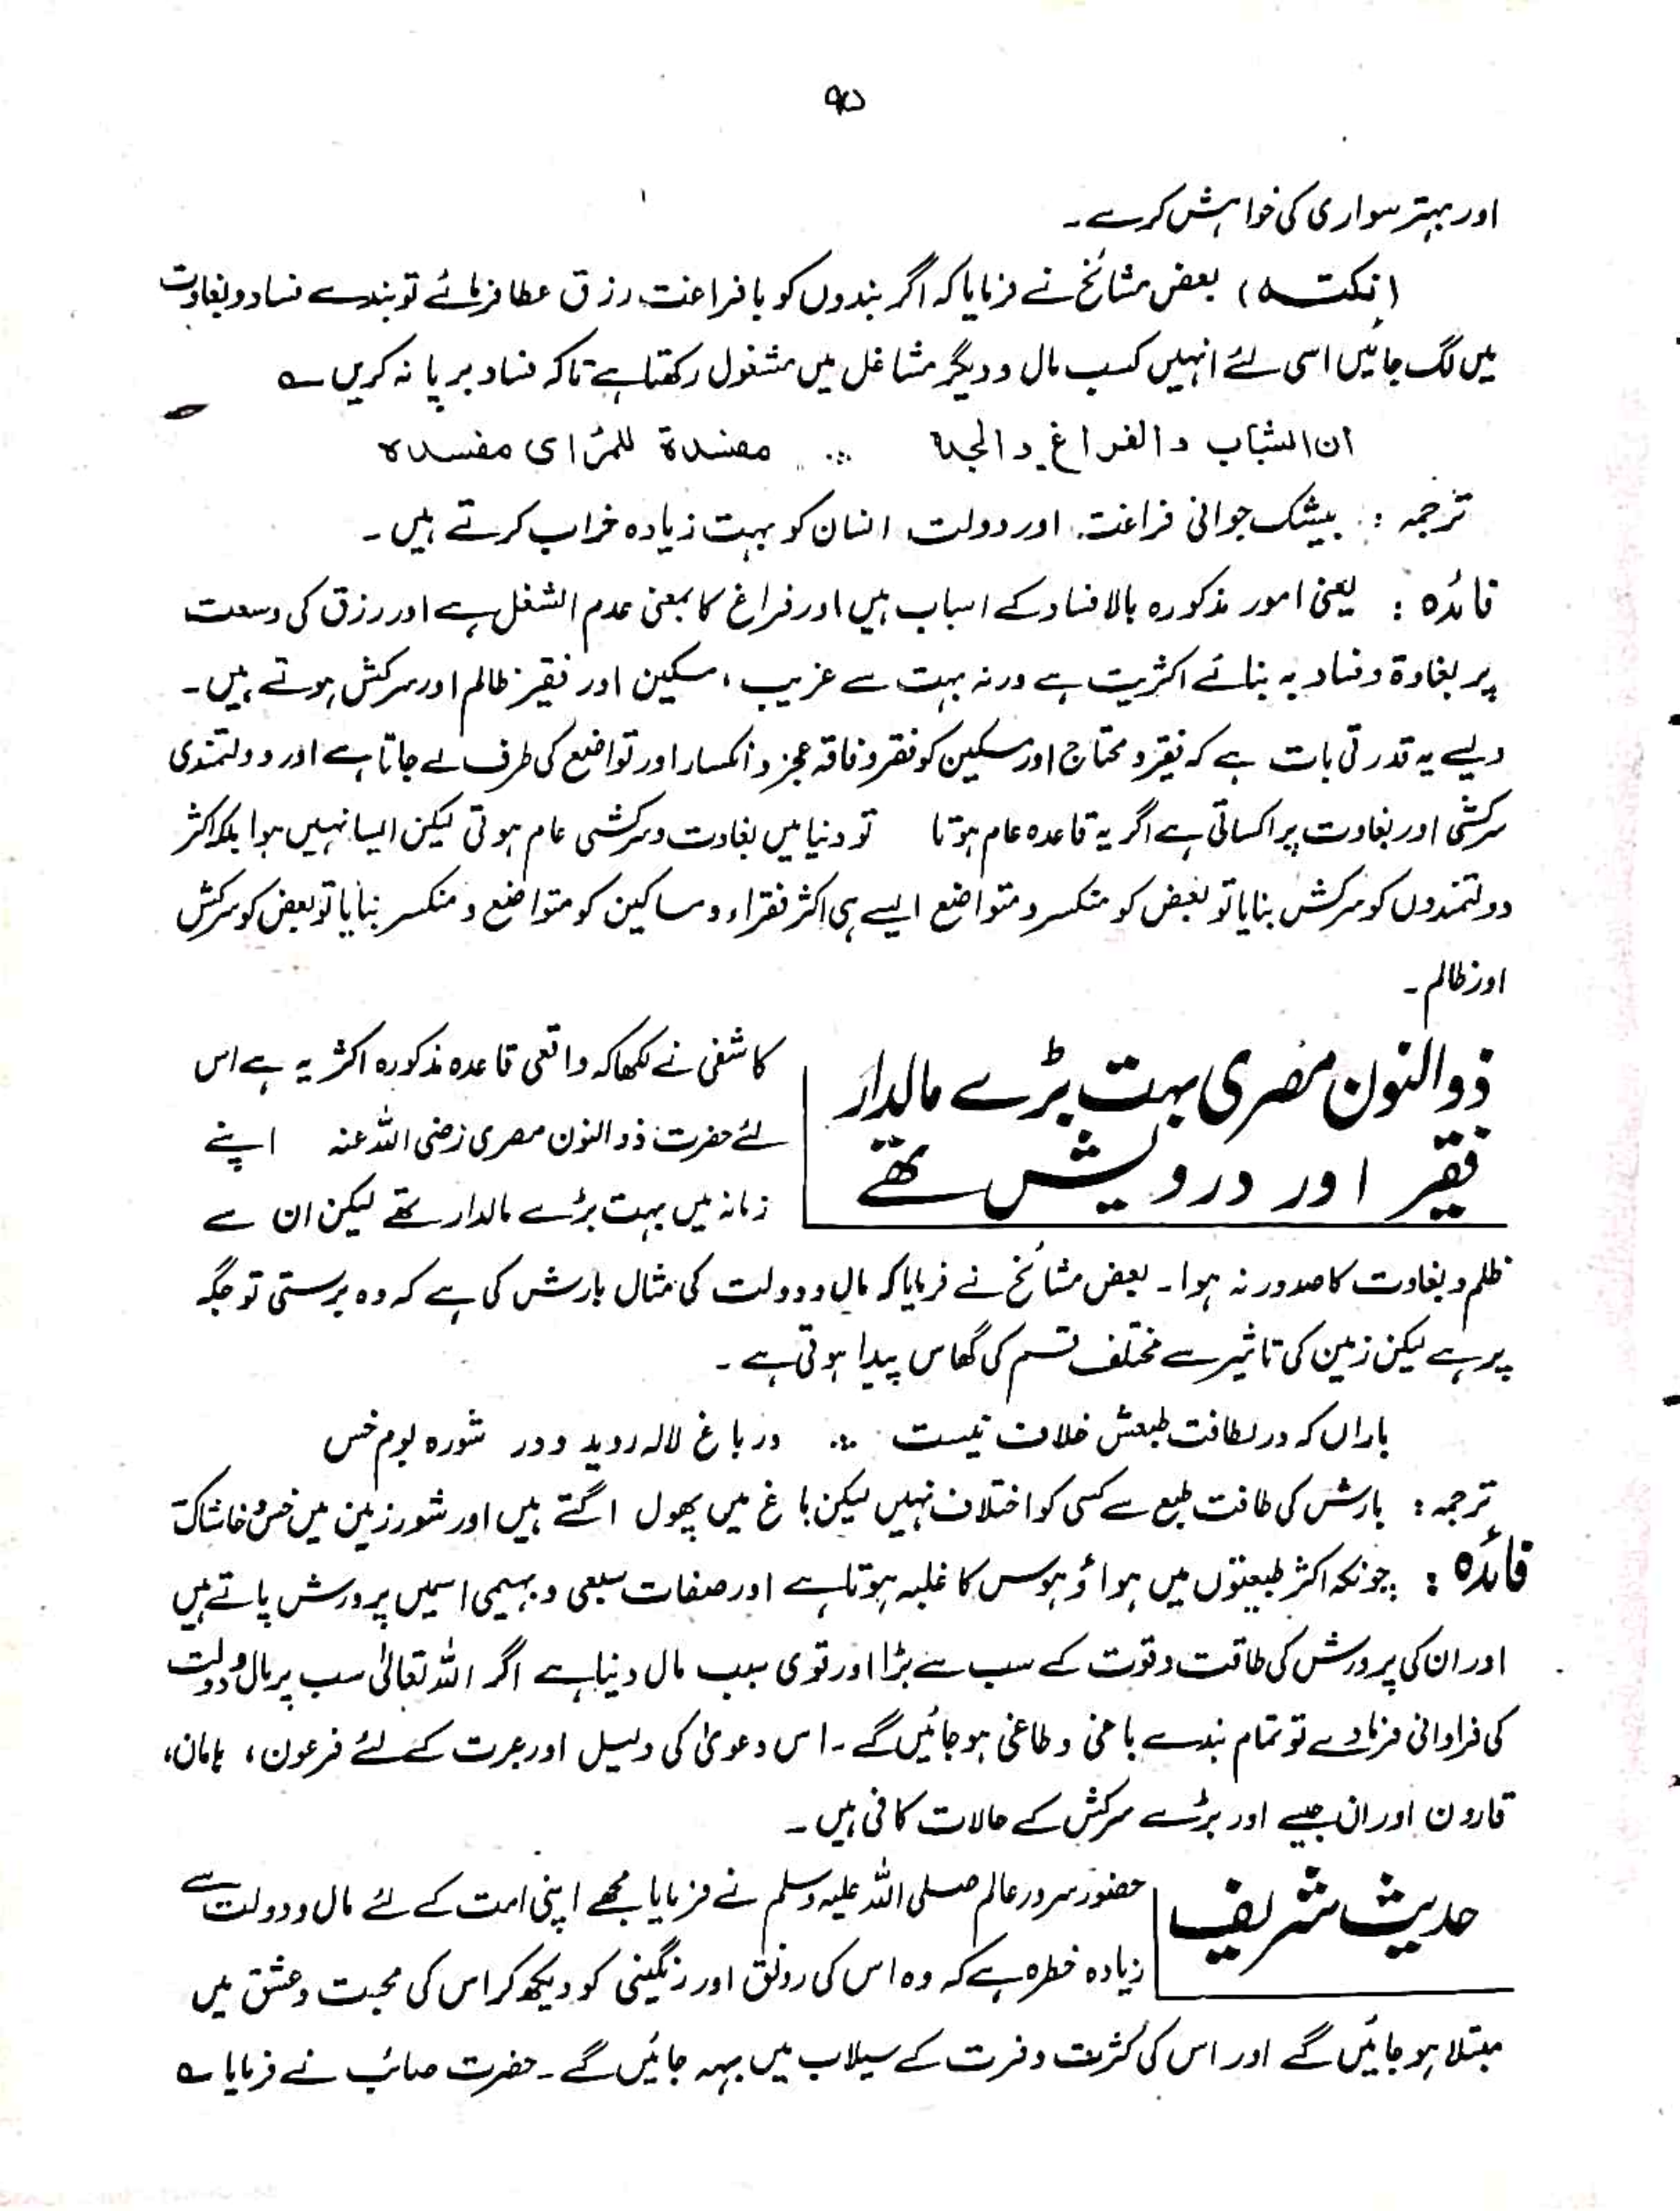 ۹۵
اور بہتر سواری کی خواہش کرے۔
(نکتہ) بعض مشائخ نے فرمایا کہ اگر بندوں کو با فراغت رزق عطا فرمائے تو بندے فساد و بغاوت
میں لگ جائیں اسی لئے انہیں کسب مال و دیگر مشاغل میں مشغول رکھتا ہے تاکہ فساد برپا نہ کریں ؎
ان الشباب والفراغ والجدہ ؞ مفسدة للمرُ ای مفسدہ
ترجمہ : بیشک جوانی فراغت اور دولت انسان کو بہت زیادہ خراب کرتے ہیں۔
فائدہ : یعنی امور مذکورہ بالا فساد کے اسباب ہیں اور فراغ کا بمعنی عدم الشغل ہے اور رزق کی وسعت
پر بغاوة و فساد یہ بنائے اکثریت ہے ورنہ بہت سے غریب، مسکین اور فقیر ظالم اور سرکش ہوتے ہیں۔
ویسے یہ قدرتی بات ہے کہ فقیر و محتاج اور مسکین کو فقر و فاقہ عجز و انکسار اور تواضع کی طرف لے جاتا ہے اور دولتمندی
سرکشی اور بغاوت پر اکساتی ہے اگر یہ قاعدہ عام ہوتا تو دنیا میں بغاوت و سرکشی عام ہوتی لیکن ایسا نہیں ہوا بلکہ اکثر
دولتمندوں کو سرکش بنایا تو بعض کو منکسر و متواضع ایسے ہی اکثر فقراء و مساکین کو متواضع و منکسر بنایا تو بعض کو سرکش
اور ظالم۔
ذوالنون مصری بہت بڑے مالدار
فقیر اور درویش تھے
کاشفی نے لکھا کہ واقعی قاعدہ مذکورہ اکثریہ ہے اس
لئے حضرت ذوالنون مصری رضی اللہ عنہ اپنے
زمانہ میں بہت بڑے مالدار تھے لیکن ان سے
ظلم و بغاوت کا صدور نہ ہوا۔ بعض مشائخ نے فرمایا کہ مال و دولت کی مثال بارش کی ہے کہ وہ برستی تو جگہ
پر ہے لیکن زمین کی تاثیر سے مختلف قسم کی گھاس پیدا ہوتی ہے۔
باراں کہ در لطافت طبعش خلاف نیست ؞ در باغ لالہ روید و در شورہ بوم خس
ترجمہ : بارش کی طافت طبع سے کسی کو اختلاف نہیں لیکن باغ میں پھول اگتے ہیں اور شور زمین میں خس و خاشاک
فائدہ : چونکہ اکثر طبیعتوں میں ہواؤ ہوس کا غلبہ ہوتا ہے اور صفات سبعی و بہیمی اسمیں پرورش پاتے ہیں
اور ان کی پرورش کی طاقت و قوت کے سب سے بڑا اور قوی سبب مال دنیا ہے اگر اللہ تعالیٰ سب پر مال و دولت
کی فراوانی فرمادے تو تمام بندے باغی و طاغی ہو جائیں گے۔ اس دعویٰ کی دلیل اور عبرت کے لئے فرعون، ہامان،
قارون اور ان جیسے اور بڑے سرکش کے حالات کافی ہیں۔
حدیث شریف
حضور سرور عالم صلی اللہ علیہ وسلم نے فرمایا مجھے اپنی امت کے لئے مال و دولت سے
زیادہ خطرہ ہے کہ وہ اس کی رونق اور رنگینی کو دیکھ کر اس کی محبت و عشق میں
مبتلا ہو جائیں گے اور اس کی کثرت وفرت کے سیلاب میں بہہ جائیں گے۔ حضرت صائب نے فرمایا ؎